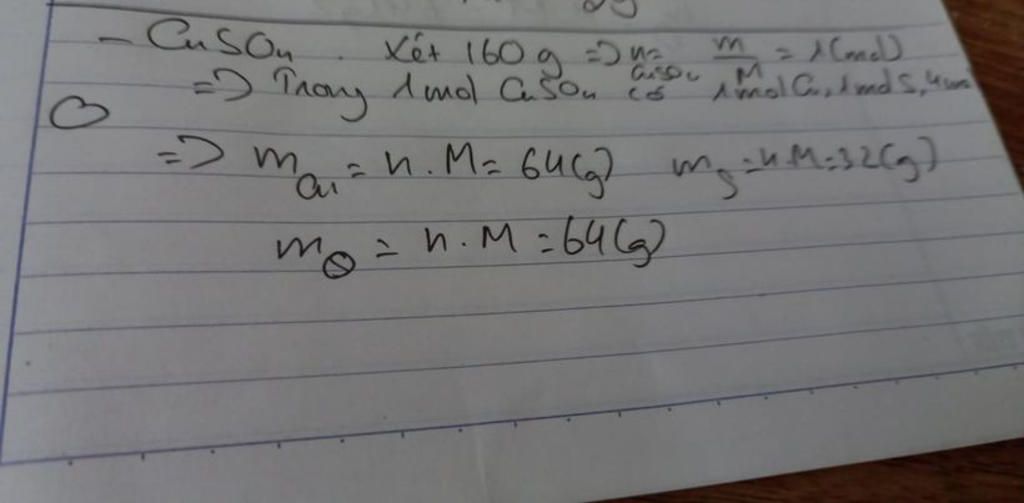 - CuSO4. Xét 160g => n CuSO4 = m/M = 1(mol)
=> Trong 1mol CuSO4 có 1molCu, 1molS, 4mol
=> mCu = n.M = 64(g) mS = n.M = 32(g)
mO = n.M = 64(g)